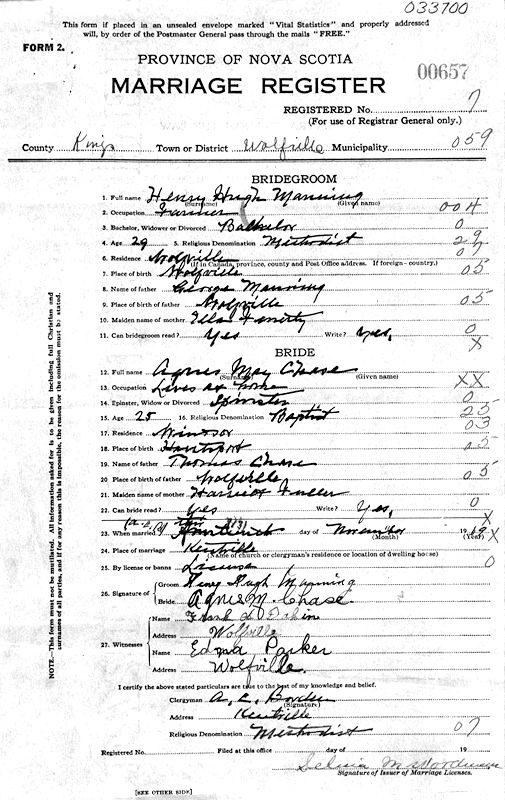 033700
This form if placed in an unsealed envelope marked "Vital Statistics" and properly addressed
will, by order of the Postmaster General pass through the mails "FREE."
FORM 2.
PROVINCE OF NOVA SCOTIA
MARRIAGE REGISTER
00657
REGISTERED No. 7
(For use of Registrar General only.)
County Kings Town or District Wolfville Municipality 059
BRIDEGROOM
1. Full name Henry Hugh Manning
(Surname) (Given name)
2. Occupation Farmer 004
3. Bachelor, Widower or Divorced Bachelor 0
4. Age 29 5. Religious Denomination Methodist 29
6. Residence Wolfville 07
(If in Canada, province, county and Post Office address. If foreign - country.)
7. Place of birth Wolfville 05
8. Name of father George Manning
9. Place of birth of father Wolfville 05
10. Maiden name of mother Ellen
11. Can bridegroom read? Yes Write? Yes, 0
X
BRIDE
12. Full name Agnes May Chase
(Surname) (Given name)
13. Occupation Lives at home XX
14. Spinster, Widow or Divorced Spinster 0
15. Age 25 16. Religious Denomination Baptist 25
17. Residence Windsor 03
18. Place of birth Hantsport 05
19. Name of father Thomas Chase
20. Place of birth of father Wolfville 05
21. Maiden name of mother Harriet Fuller
22. Can bride read? Yes Write? Yes, 0
X
23. When married day of November 19
(Month) (Year) X
24. Place of marriage Kentville
(Name of church or clergyman's residence or location of dwelling house)
25. By license or banns License 0
26. Signature of Groom Henry Hugh Manning
Bride Agnes M. Chase.
27. Witnesses Name Frank L. Dakin
Address Wolfville
Name Edna Parker
Address Wolfville.
I certify the above stated particulars are true to the best of my knowledge and belief.
Clergyman A. E.
(Signature)
Address Kentville
Religious Denomination Methodist 07
Registered No. Filed at this office day of 19
Signature of Issuer of Marriage Licenses.
[SEE OTHER SIDE]
NOTE.—This form must not be mutilated. All information asked for is to be given including full Christian and
surnames of all parties, and if for any reason this is impossible, the reason for the omission must be stated.